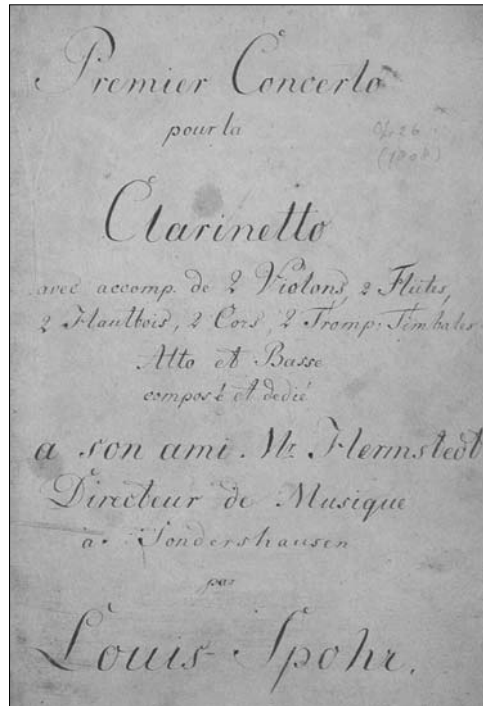 Premier Concerto
pour la
Op. 26
(1808)
Clarinetto
avec accomp. de 2 Violons, 2 Flûtes,
2 Hautbois, 2 Cors, 2 Tromp: Timbales
Alto et Basse
composé et dedié
a son ami Mr. Hermstedt
Directeur de Musique
à Sondershausen
par
Louis Spohr.